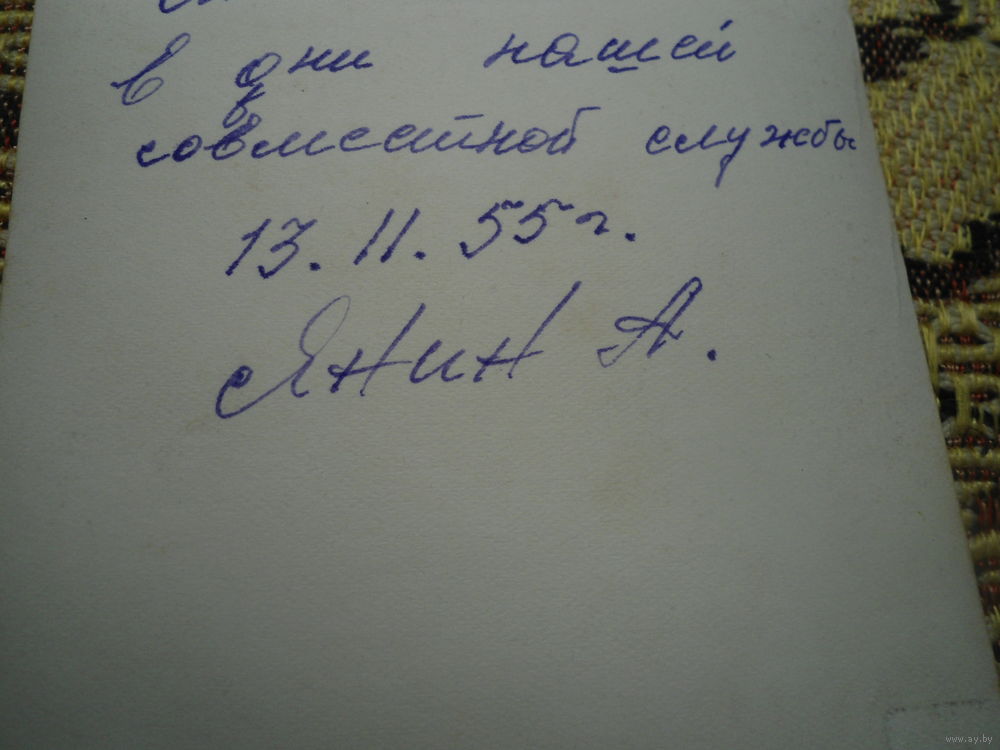 в дни нашей
совместной службы
13. II. 55 г.
Янин А.
www.ay.by